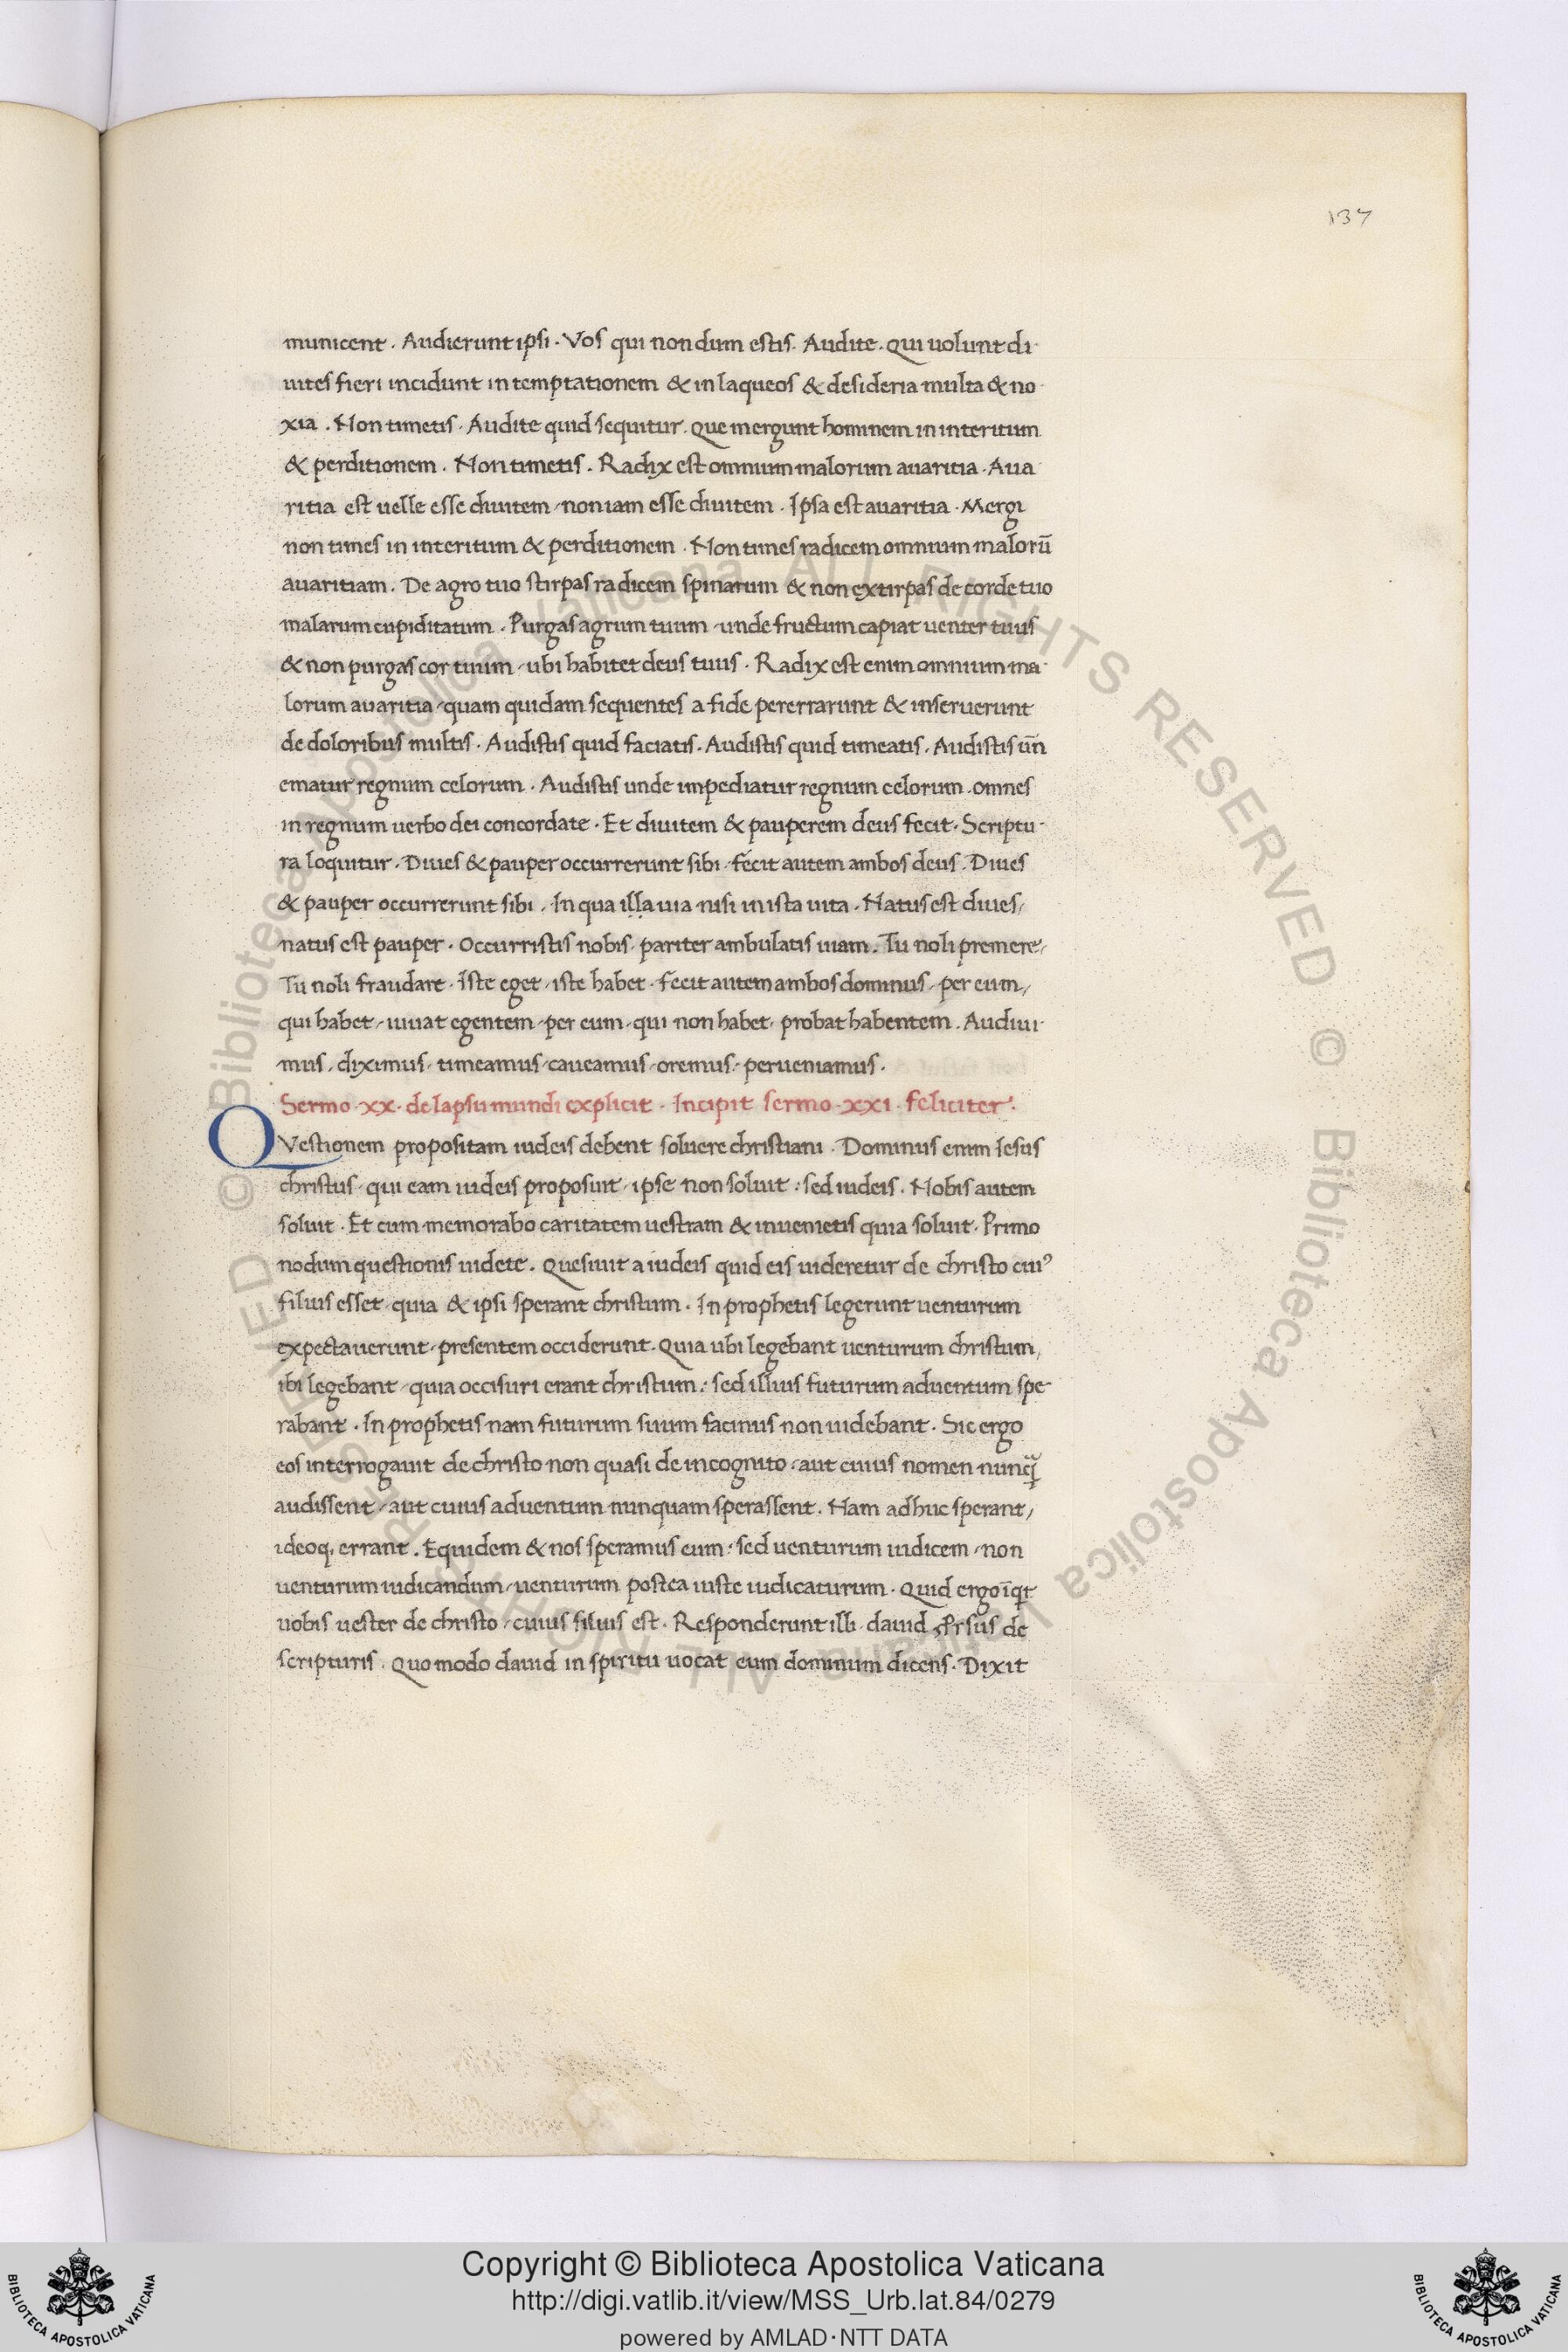 137
municent. Audierunt ipsi. Vos qui nondum estis. Audite. Qui uolunt di-
uites fieri incidunt in temptationem & in laqueos & desideria multa & no-
xia. Non timetis. Audite quid sequitur. Que mergunt hominem in interitum
& perditionem. Non timetis. Radix est omnium malorum auaritia. Aua
ritia est uelle esse diuitem, non iam esse diuitem. Ipsa est auaritia. Mergi
non times in interitum & perditionem. Non times radicem omnium malorū
auaritiam. De agro tuo stirpas radicem spinarum & non extirpas de corde tuo
malarum cupiditatum. Purgas agrum tuum, unde fructum capiat uenter tuus
& non purgas cor tuum, ubi habitet deus tuus. Radix est enim omnium ma-
lorum auaritia, quam quidam sequentes a fide pererrarunt & inseruerunt
de doloribus multis. Audistis quid faciatis. Audistis quid timeatis. Audistis uñ
ematur regnum celorum. Audistis unde impediatur regnum celorum. omnes
in regnum uerbo dei concordate. Et diuitem & pauperem deus fecit. Scriptu-
ra loquitur. Diues & pauper occurrerunt sibi, fecit autem ambos deus. Diues
& pauper occurrerunt sibi. In qua illa uia nisi in ista uita. Natus est diues,
natus est pauper. Occurristis nobis, pariter ambulatis uiam. Tu noli premere,
Tu noli fraudare. Iste eget, iste habet. fecit autem ambos dominus, per eum,
qui habet, iuuat egentem, per eum, qui non habet, probat habentem. Audiui-
mus, diximus, timeamus, caueamus, oremus, perueniamus.
Sermo .xx. de lapsu mundi explicit. Incipit sermo .xxi. feliciter.
QVestionem propositam iudeis debent soluere christiani. Dominus enim Iesus
christus, qui eam iudeis proposuit, ipse non soluit: sed iudeis. Nobis autem
soluit. Et cum memorabo caritatem uestram & inuenietis quia soluit. Primo
nodum questionis uidete. Quesiuit a iudeis quid eis uideretur de christo cuiꝰ
filius esset, quia & ipsi sperant christum. In prophetis legerunt uenturum
expectauerunt, presentem occiderunt. Quia ubi legebant uenturum christum,
ibi legebant, quia occisuri erant christum: sed illius futurum aduentum spe-
rabant. In prophetis nam futurum suum facinus non uidebant. Sic ergo
eos interrogauit de christo non quasi de incognito, aut cuius nomen nunq̃
audissent, aut cuius aduentum nunquam sperassent. Nam adhuc sperant,
ideoq; errant. Equidem & nos speramus eum: sed uenturum iudicem, non
uenturum iudicandum, uenturum postea iuste iudicaturum. Quid ergo īqt
uobis uester de christo, cuius filius est. Responderunt illi, dauid. Prsus de
scripturis. Quomodo dauid in spiritu uocat eum dominum dicens. Dixit
© Biblioteca Apostolica Vaticana ALL RIGHTS RESERVED © Biblioteca Apostolica Vaticana ALL RIGHTS RESERVED
Copyright © Biblioteca Apostolica Vaticana
http://digi.vatlib.it/view/MSS_Urb.lat.84/0279
powered by AMLAD·NTT DATA
BIBLIOTECA APOSTOLICA VATICANA
BIBLIOTECA APOSTOLICA VATICANA